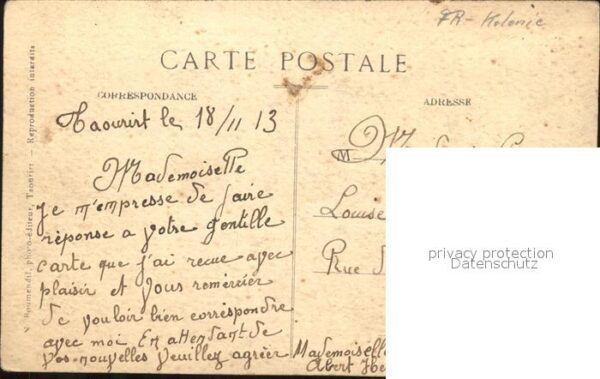 FR- Kolonie
CARTE POSTALE
CORRESPONDANCE
ADRESSE
Taourirt le 18/11 13
Mademoiselle
Je m'empresse de faire
réponse a votre gentille
carte que j'ai recue avec
plaisir et vous remercier
de vouloir bien correspondre
avec moi En attendant de
vos nouvelles veuillez agréer Mademoiselle
Abert
M
Louise
Rue
privacy protection
Datenschutz
V. Boumendil, photo-éditeur, Taourirt — Reproduction interdite